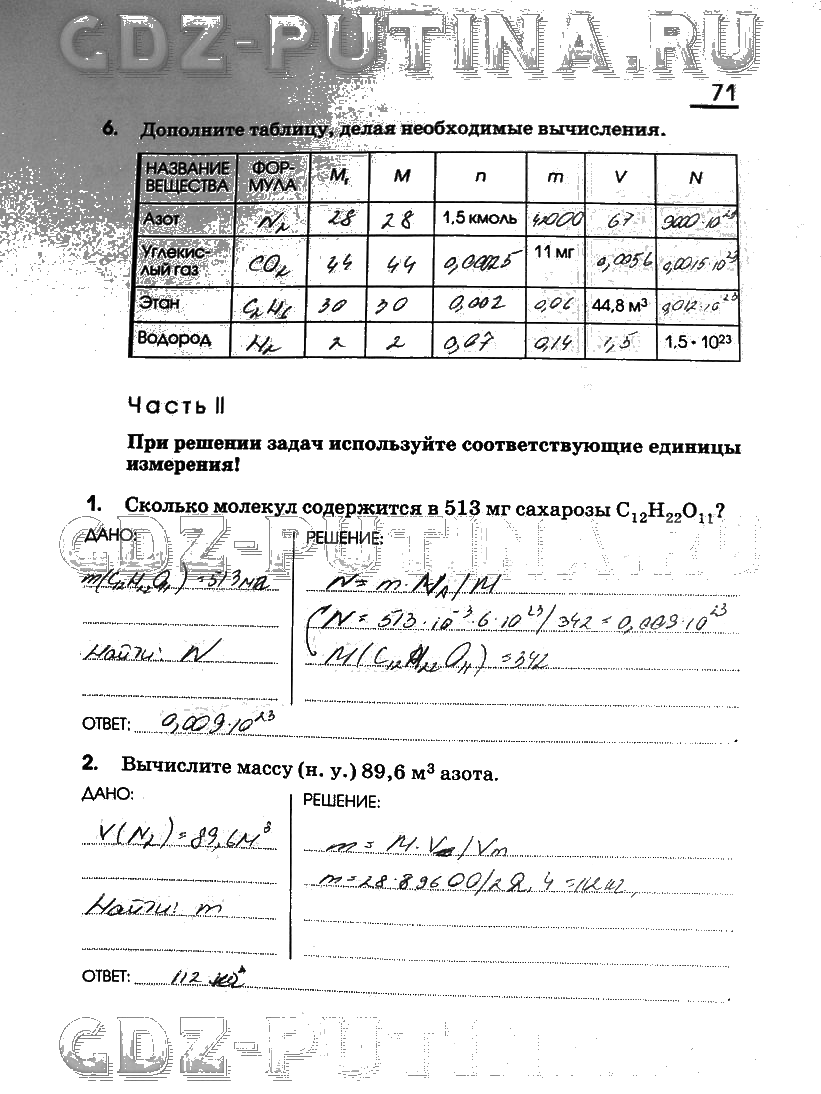 GDZ-PUTINA.RU
71
6. Дополните таблицу, делая необходимые вычисления.
НАЗВАНИЕ ВЕЩЕСТВА ФОР-МУЛА Mr M n m V N
Азот N₂ 28 28 1,5 кмоль 42000 67 9000·10²³
Углекис-лый газ CO₂ 44 44 0,00025 11 мг 0,0056 0,0015·10²³
Этан C₂H₆ 30 30 0,002 0,06 44,8 м³ 0,012·10²³
Водород H₂ 2 2 0,07 0,14 1,5 1,5·10²³
Часть II
При решении задач используйте соответствующие единицы
измерения!
1. Сколько молекул содержится в 513 мг сахарозы C₁₂H₂₂O₁₁?
GDZ-PUTINA.RU
ДАНО: РЕШЕНИЕ:
m(C₁₂H₂₂O₁₁) = 513 мг N = m·Nₐ/M
N = 513·10⁻³·6·10²³/342 = 0,009·10²³
Найти: N M(C₁₂H₂₂O₁₁) = 342
ОТВЕТ: 0,009·10²³.
2. Вычислите массу (н. у.) 89,6 м³ азота.
ДАНО: РЕШЕНИЕ:
V(N₂) = 89,6 м³ m = M·V/Vm
m = 28·89600/22,4 = 112 кг
Найти: m
ОТВЕТ: 112 кг.
GDZ-PUTINA.RU